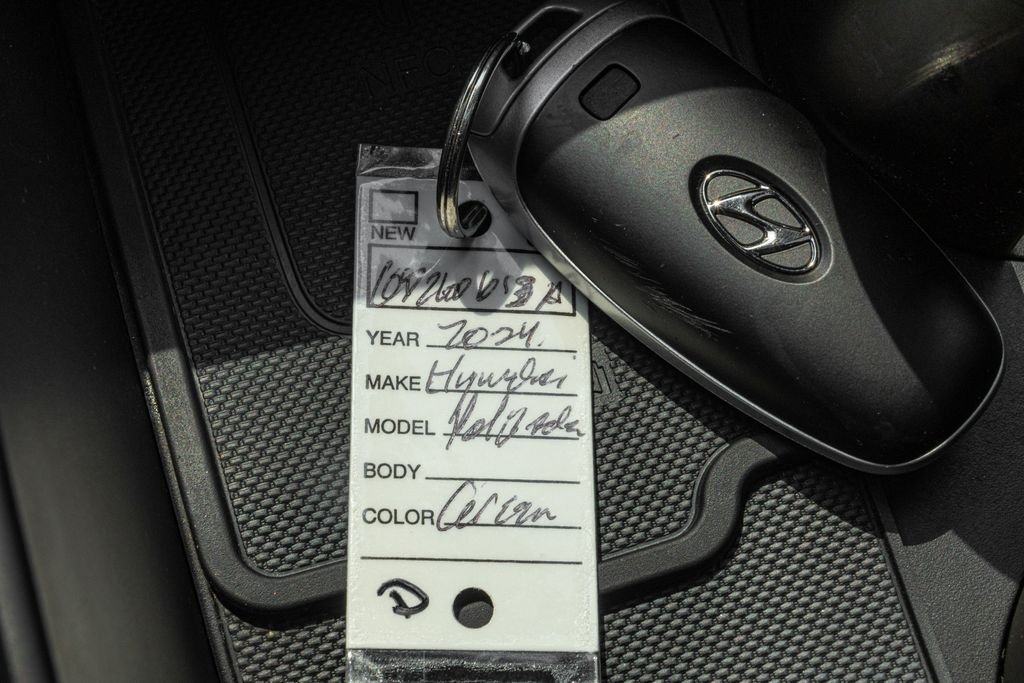 NFC
NEW
YEAR 2024.
MAKE Hyundai
MODEL Palisade
BODY
COLOR Green
D